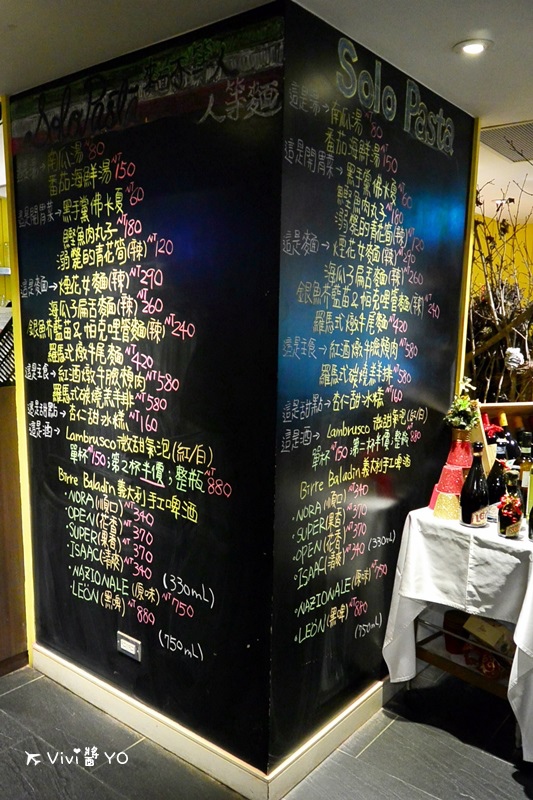 Solo Pasta
人笨麵
這是湯→南瓜湯 NT80
番茄海鮮湯 NT150
這是開胃菜→黑手黨佛卡夏 NT60
鰹魚肉丸子 NT180
溺斃的青花筍(辣) NT120
這是麵→煙花女麵(辣) NT290
海瓜子扁舌麵(辣) NT260
銀魚芥藍苗&帕克哩管麵(辣) NT240
羅馬式燉牛尾麵 NT420
這是主食→紅酒燉牛腮頰肉 NT580
羅馬式碳燒羔羊排 NT580
這是甜點→杏仁甜冰糕 NT160
這是酒→Lambrusco 微甜氣泡(紅/白)
單杯NT150;第2杯半價;整瓶NT880
Birre Baladin 義大利手工啤酒
·NORA(順口) NT340
·OPEN(花香) NT370
·SUPER(果香) NT370
·ISAAC(清爽) NT340 (330mL)
·NAZIONALE(原味) NT750
·LEON(黑啤) NT880 (750mL)
Solo Pasta
這是湯→南瓜湯 NT80
番茄海鮮湯 NT150
這是開胃菜→黑手黨佛卡夏 NT60
鰹魚肉丸子 NT180
溺斃的青花筍(辣) NT120
這是麵→煙花女麵(辣) NT290
海瓜子扁舌麵(辣) NT260
銀魚芥藍苗&帕克哩管麵(辣) NT240
羅馬式燉牛尾麵 NT420
這是主食→紅酒燉牛腮頰肉 NT580
羅馬式碳燒羔羊排 NT580
這是甜點→杏仁甜冰糕 NT160
這是酒→Lambrusco 微甜氣泡(紅/白)
單杯NT150;第2杯半價;整瓶NT880
Birre Baladin 義大利手工啤酒
·NORA(順口) NT340
·SUPER(果香) NT370
·OPEN(花香) NT370
·ISAAC(清爽) NT340 (330mL)
·NAZIONALE(原味) NT750
·LEON(黑啤) NT880 (750mL)
Vivi醬YO